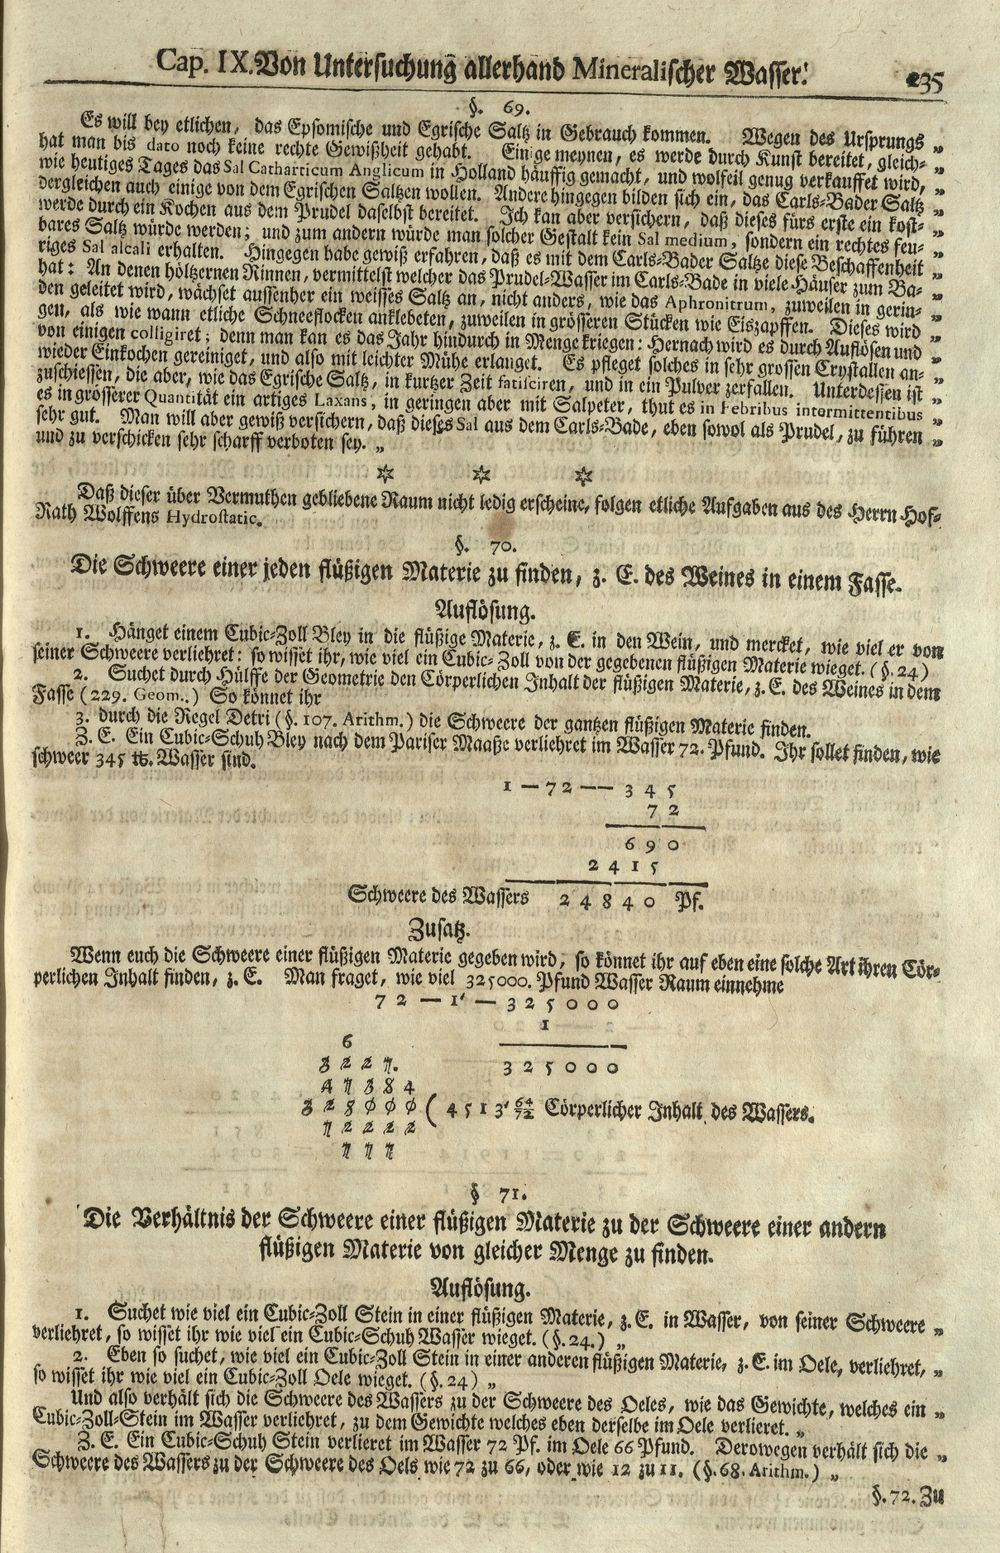 Cap. IX. Von Untersuchung allerhand Mineralischer Wasser. 235
§. 69.
Es will bey etlichen, das Epsomische und Egrische Saltz in Gebrauch kommen. Wegen des Ursprungs „
hat man bis dato noch keine rechte Gewißheit gehabt. Einige meynen, es werde durch Kunst bereitet, gleich- „
wie heutiges Tages das Sal Catharticum Anglicum in Holland häuffig gemacht, und wolfeil genug verkauffet wird, „
dergleichen auch einige von dem Egrischen Saltzen wollen. Andere hingegen bilden sich ein, das Carls-Bader Saltz „
werde durch ein Kochen aus dem Prudel daselbst bereitet. Ich kan aber versichern, daß dieses fürs erste ein kost- „
bares Saltz würde werden; und zum andern würde man solcher Gestalt kein Sal medium, sondern ein rechtes feu- „
riges Sal alcali erhalten. Hingegen habe gewiß erfahren, daß es mit dem Carls-Bader Saltze diese Beschaffenheit „
hat: An denen höltzernen Rinnen, vermittelst welcher das Prudel-Wasser im Carls-Bade in viele Häuser zum Ba- „
den geleitet wird, wächset aussenher ein weisses Saltz an, nicht anders, wie das Aphronitrum, zuweilen in gerin- „
gen, als wie wann etliche Schneeflocken anklebeten, zuweilen in grösseren Stücken wie Eiszapffen. Dieses wird „
von einigen colligiret; denn man kan es das Jahr hindurch in Menge kriegen: Hernach wird es durch Auflösen und „
wieder Einkochen gereiniget, und also mit leichter Mühe erlanget. Es pfleget solches in sehr grossen Crystallen an- „
zuschiessen, die aber, wie das Egrische Saltz, in kurtzer Zeit fatisciren, und in ein Pulver zerfallen. Unterdessen ist „
es in grösserer Quantität ein artiges Laxans, in geringen aber mit Salpeter, thut es in Febribus intermittentibus „
sehr gut. Man will aber gewiß versichern, daß dieses Sal aus dem Carls-Bade, eben sowol als Prudel, zu führen „
und zu verschicken sehr scharff verboten sey. „
* * *
Daß dieser über Vermuthen gebliebene Raum nicht ledig erscheine, folgen etliche Aufgaben aus des Herrn Hof-
Rath Wolffens Hydrostatic.
§. 70.
Die Schweere einer jeden flüßigen Materie zu finden, z. E. des Weines in einem Fasse.
Auflösung.
1. Hänget einem Cubic-Zoll Bley in die flüßige Materie, z. E. in den Wein, und mercket, wie viel er von
seiner Schweere verliehret: so wisset ihr, wie viel ein Cubic-Zoll von der gegebenen flüßigen Materie wieget. (§. 24)
2. Suchet durch Hülffe der Geometrie den Cörperlichen Inhalt der flüßigen Materie, z. E. des Weines in dem
Fasse (229. Geom.) So könnet ihr
3. durch die Regel Detri (§. 107. Arithm.) die Schweere der gantzen flüßigen Materie finden.
Z. E. Ein Cubic-Schuh Bley nach dem Pariser Maaße verliehret im Wasser 72. Pfund. Ihr sollet finden, wie
schweer 345 ℔. Wasser sind.
1 — 72 — 345
72
690
2415
Schweere des Wassers 24840 Pf.
Zusatz.
Wenn euch die Schweere einer flüßigen Materie gegeben wird, so könnet ihr auf eben eine solche Art ihren Cör-
perlichen Inhalt finden, z. E. Man fraget, wie viel 325000. Pfund Wasser Raum einnehme
72 — 1' — 325000
1
6
3227. 325000
47384
328000 ( 4513' 64/72 Cörperlicher Inhalt des Wassers.
72222
777
§ 71.
Die Verhältnis der Schweere einer flüßigen Materie zu der Schweere einer andern
flüßigen Materie von gleicher Menge zu finden.
Auflösung.
1. Suchet wie viel ein Cubic-Zoll Stein in einer flüßigen Materie, z. E. in Wasser, von seiner Schweere „
verliehret, so wisset ihr wie viel ein Cubic-Schuh Wasser wieget. (§. 24.) „
2. Eben so suchet, wie viel ein Cubic-Zoll Stein in einer anderen flüßigen Materie, z. E. im Oele, verliehret, „
so wisset ihr wie viel ein Cubic-Zoll Oele wieget. (§. 24) „
Und also verhält sich die Schweere des Wassers zu der Schweere des Oeles, wie das Gewichte, welches ein „
Cubic-Zoll-Stein im Wasser verliehret, zu dem Gewichte welches eben derselbe im Oele verlieret. „
Z. E. Ein Cubic-Schuh Stein verlieret im Wasser 72 Pf. im Oele 66 Pfund. Derowegen verhält sich die „
Schweere des Wassers zu der Schweere des Oels wie 72 zu 66, oder wie 12 zu 11. (§. 68. Arithm.) „
§. 72. Zu